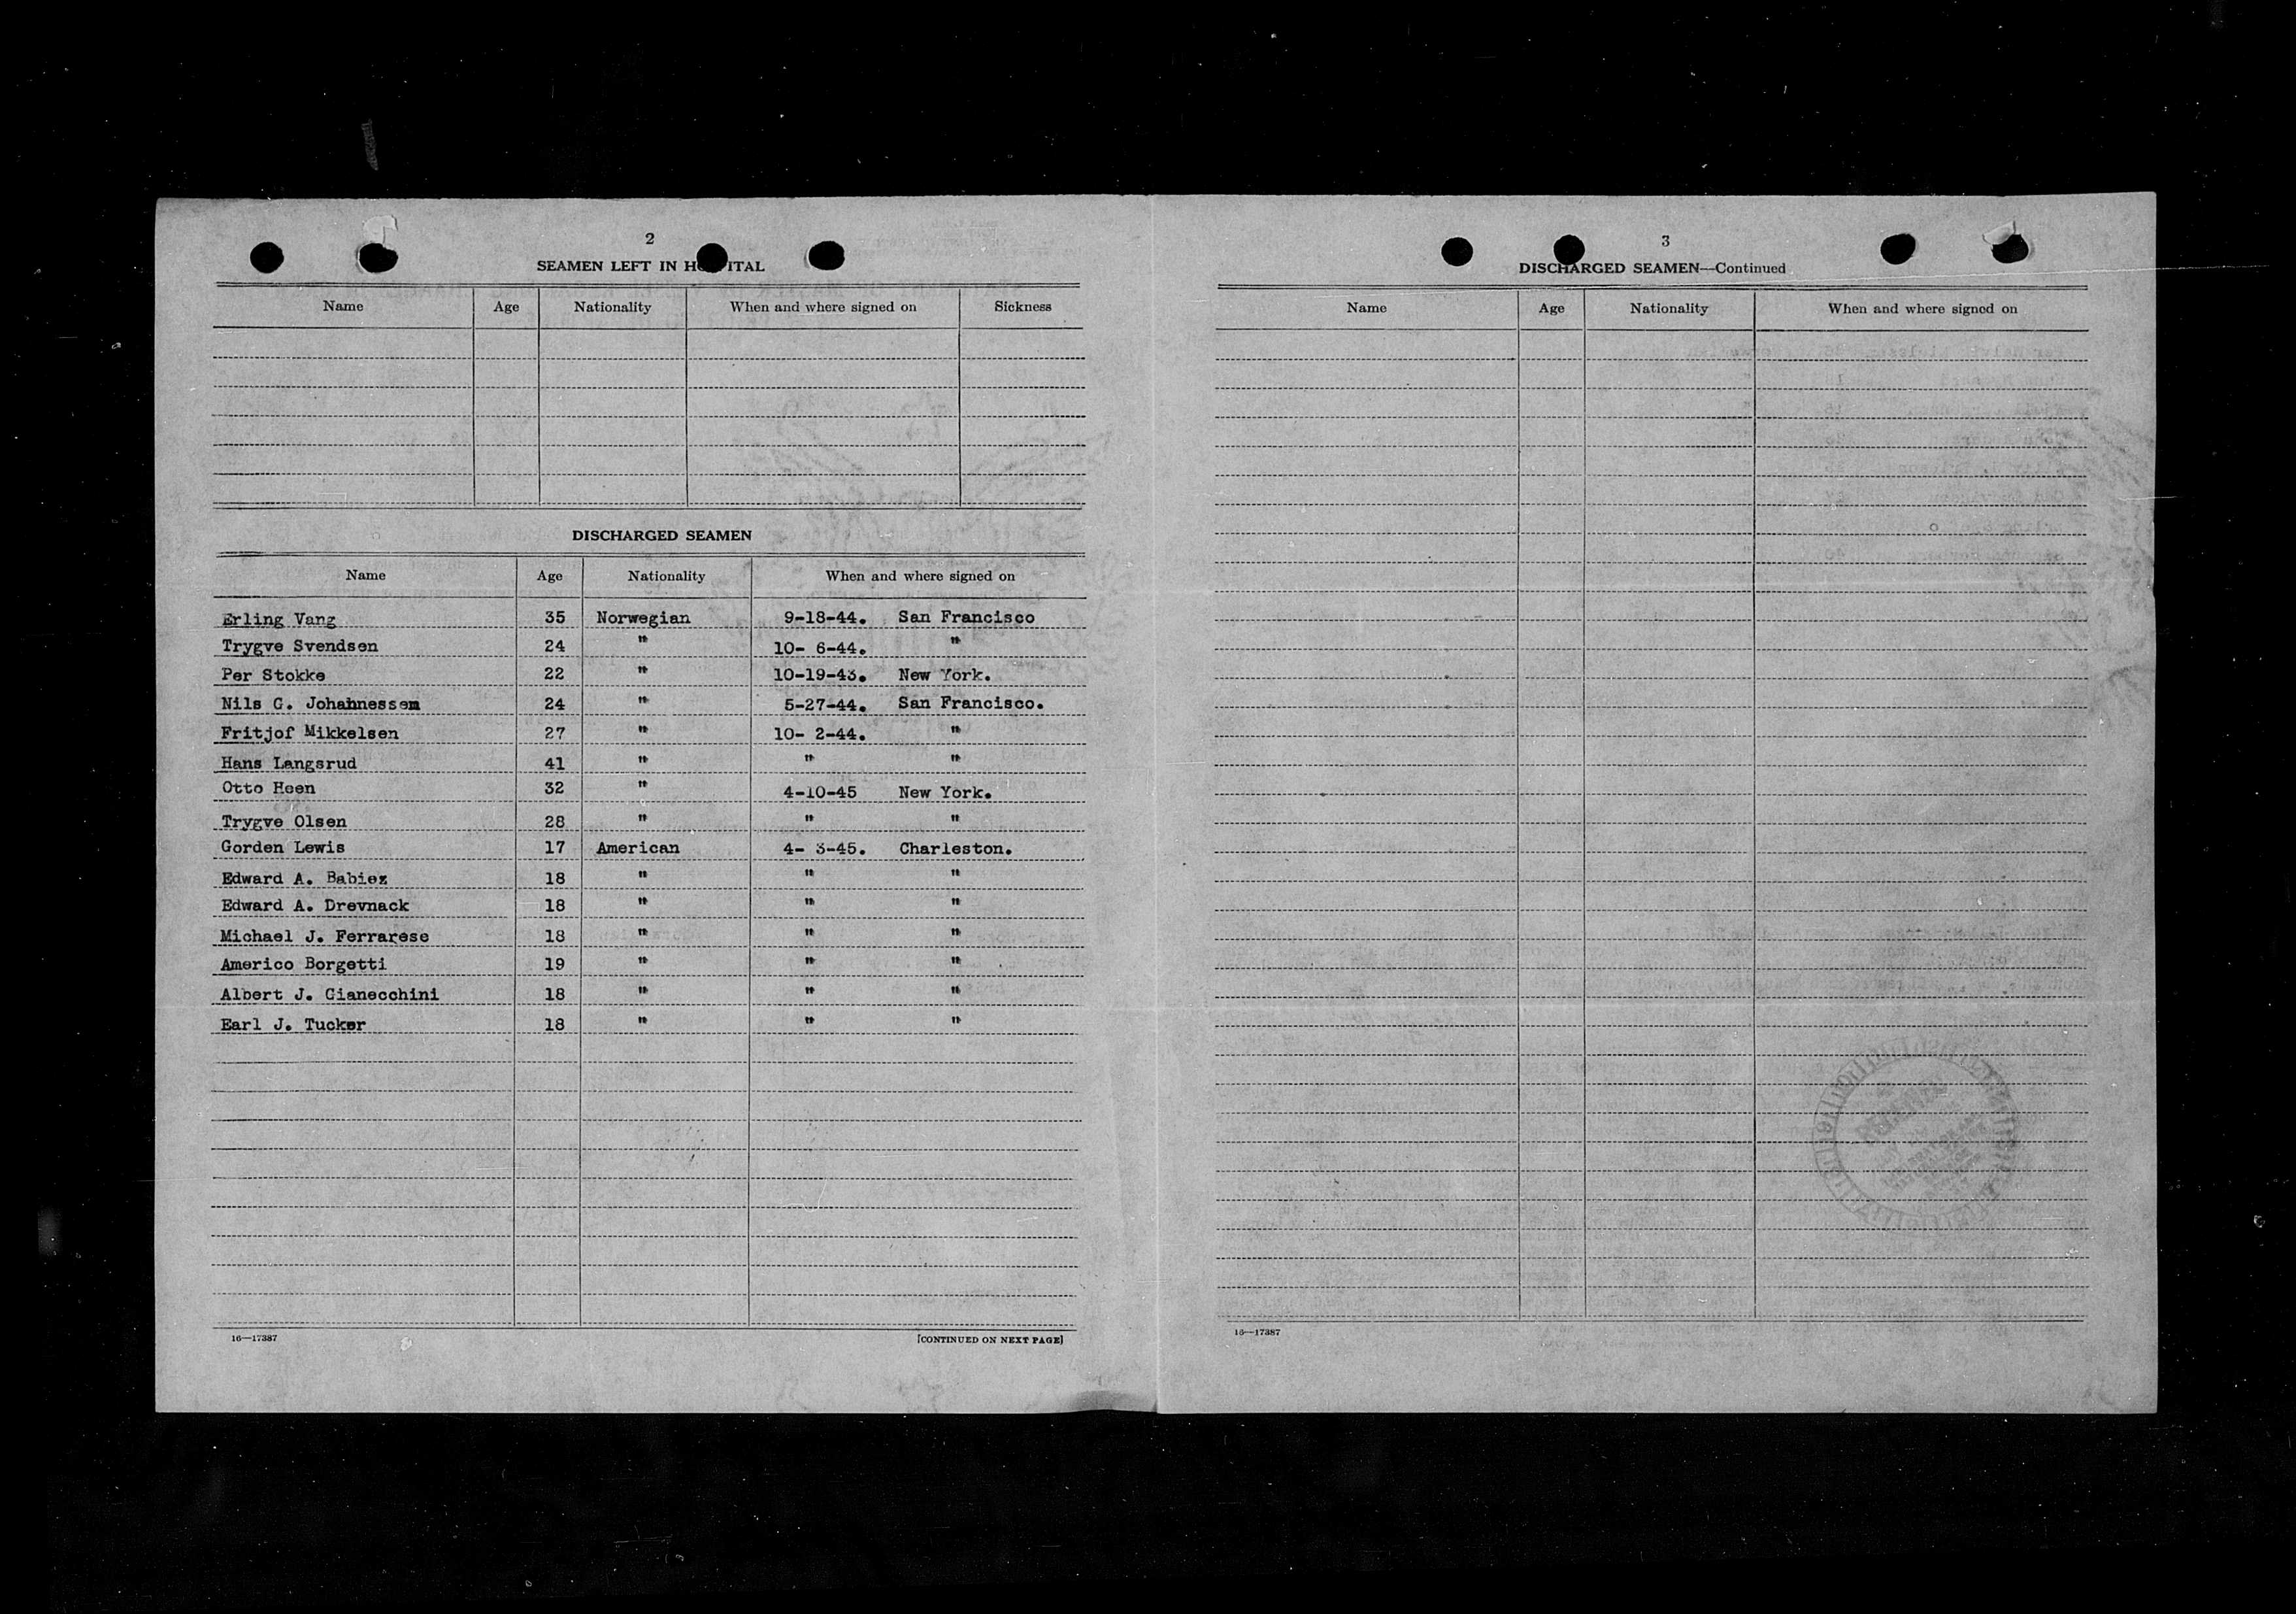 2
SEAMEN LEFT IN HOSPITAL
Name Age Nationality When and where signed on Sickness
DISCHARGED SEAMEN
Name Age Nationality When and where signed on
Erling Vang 35 Norwegian 9-18-44. San Francisco
Trygve Svendsen 24 " 10- 6-44. "
Per Stokke 22 " 10-19-43. New York.
Nils G. Johannessen 24 " 5-27-44. San Francisco.
Fritjof Mikkelsen 27 " 10- 2-44. "
Hans Langsrud 41 " " "
Otto Heen 32 " 4-10-45 New York.
Trygve Olsen 28 " " "
Gorden Lewis 17 American 4- 3-45. Charleston.
Edward A. Babiez 18 " " "
Edward A. Drevnack 18 " " "
Michael J. Ferrarese 18 " " "
Americo Borgetti 19 " " "
Albert J. Gianecchini 18 " " "
Earl J. Tucker 18 " " "
16—17387 [CONTINUED ON NEXT PAGE]
3
DISCHARGED SEAMEN—Continued
Name Age Nationality When and where signed on
16—17387